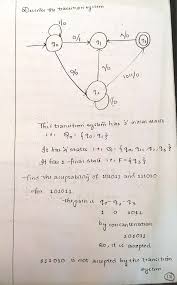 the transition system
1/0
0/0
q0
0/1
q1
1/0
q3
q2
This transition system has 2 initial states
i.e. Q0 = {q0, q1}
It has 4 states i.e. Q = {q0, q1, q2, q3}
It has 1 final state i.e. F = {q3}
find the acceptability of 101011 and 111010
for 101011
q0 - q2 - q3
1 0 1011
by concatenation
101011
So, it is accepted.
111010 is not accepted by the transition
system